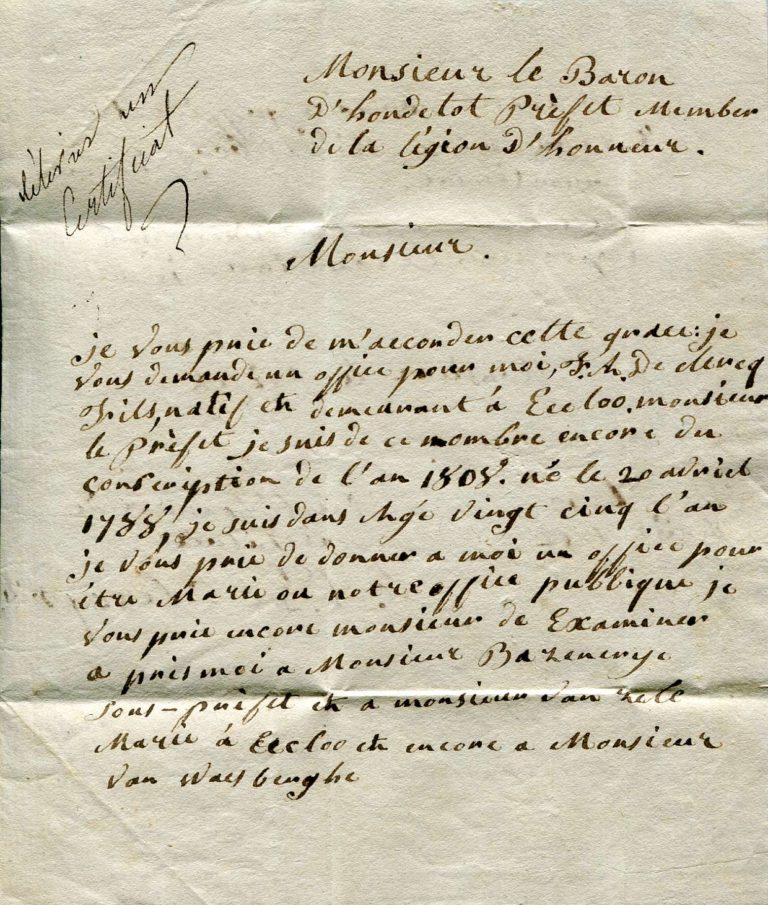 délivrer un
Certificat
Monsieur le Baron
D'houdetot Prèfet Member
de la légion D'honneur.
Monsieur.
je vous prie de m'accorder cette grace: je
vous demande un office pour moi, De clercq
Fils, natif et demeurant á Eecloo, monsieur
le Prèfet je suis de ce nombre encore du
Conscription de l'an 1808. né le 20 avriel
1788, je suis dans Agé vingt cinq l'an
je vous prie de donner a moi un office pour
étre Marie ou notre office publique je
vous prie encore monsieur de Examiner
a pris moi a Monsieur
sous-prèfet et a monsieur van zele
Marie á Eecloo et encore a Monsieur
van Waesbenghe